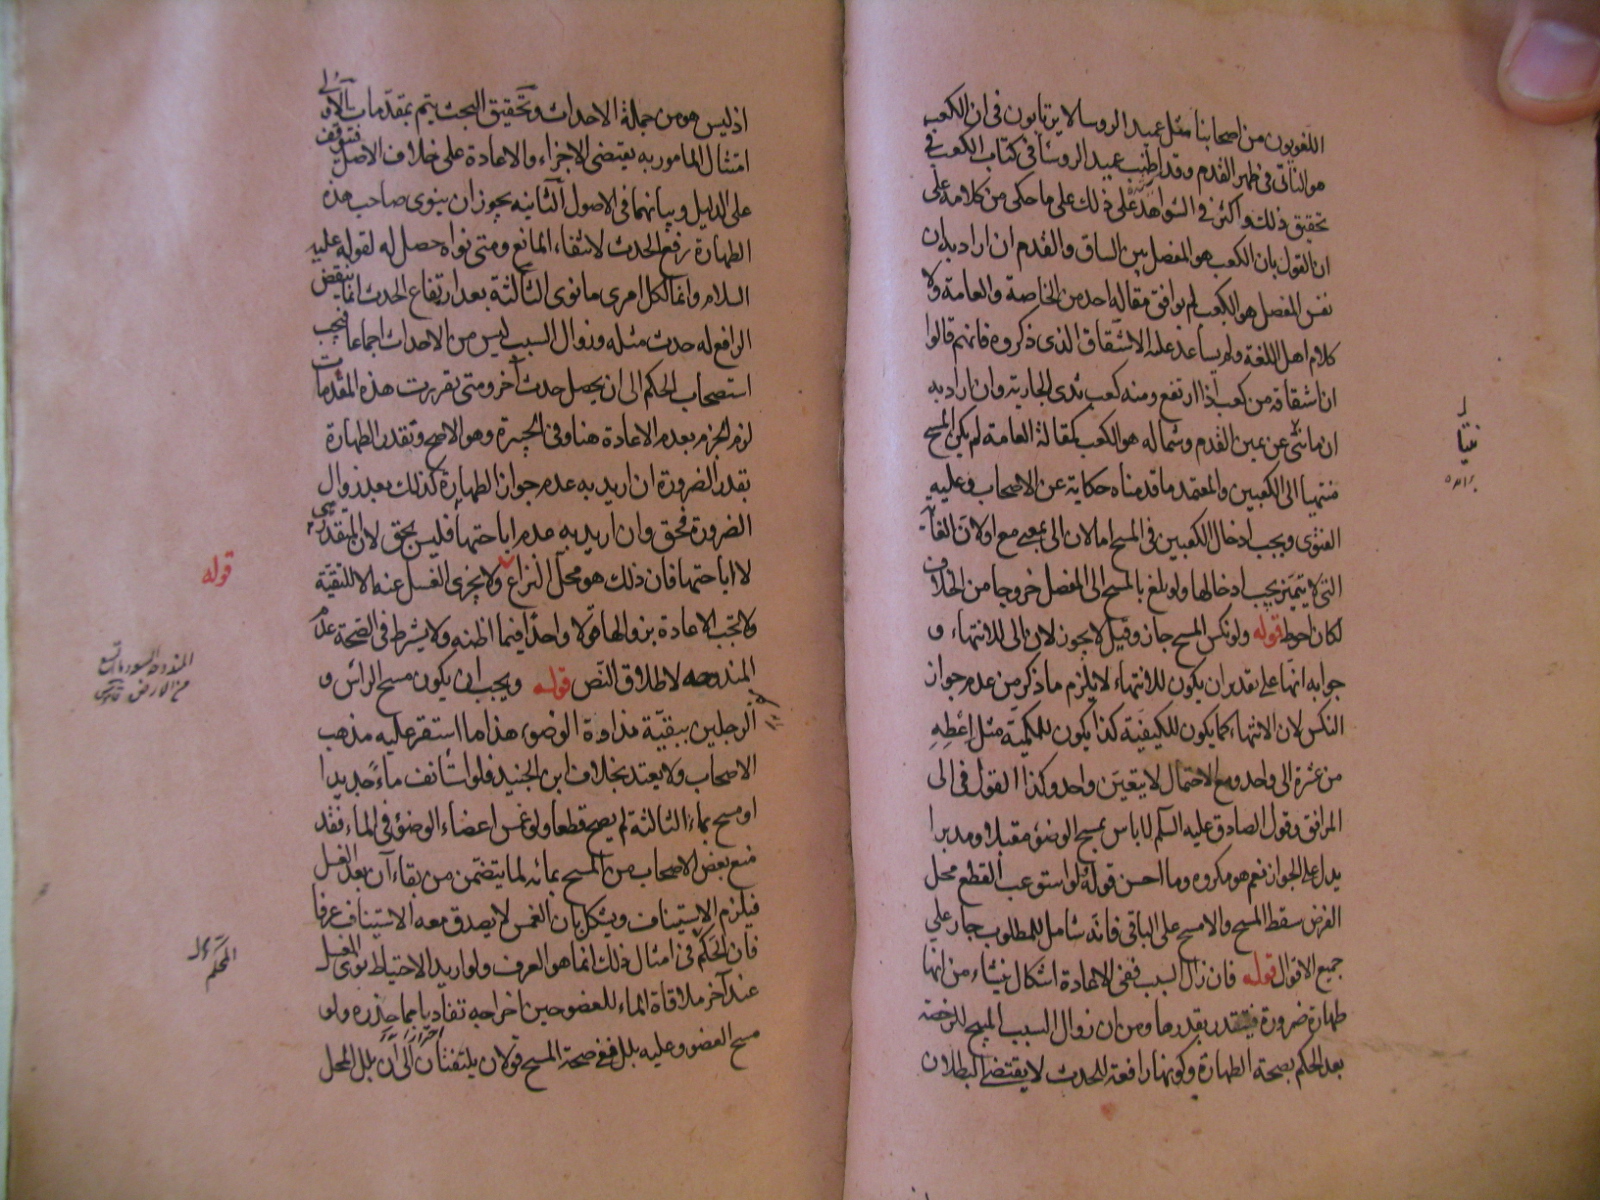 اللغويون من اصحابنا مثل عميد الروسا لا يرتابون في ان الكعب
هو الناتى في ظهر القدم وقد اطنب عميد الروسا في كتاب الكعب في
تحقيق ذلك واكثر في الشواهد على ذلك على ما حكى من كلامه على
ان القول بان الكعب هو المفصل بين الساق والقدم ان اراد به ان
نفس المفصل هو الكعب لم يوافق مقاله احد من الخاصة والعامة ولا
كلام اهل اللغة ولم يساعد عليه الاشتقاق الذى ذكروه فانهم قالوا
ان اشتقاقه من كعب اذا ارتفع ومنه كعب ثدى الجارية وان اراد به
ان ما نتئ عن يمين القدم وشماله هو الكعب كمقالة العامة لم يكن المسح
منتهيا الى الكعبين والمعتمد ما قدمناه حكاية عن الاصحاب وعليه
الفتوى ويجب ادخال الكعبين في المسح اما لان الى بمعنى مع او لان الغاية
التى لا يتميز يجب ادخالها ولو بلغ بالمسح الى المفصل خروجا من الخلاف
لكان احوط قوله ولو نكس المسح جاز وقيل لا يجوز لان الى للانتهاء و
جوابه انها على تقدير ان يكون للانتهاء لا يلزم ما ذكر من عدم جواز
النكس لان الانتهاء كما يكون للكيفية كذا يكون للكمية مثل اعطه
من عشرة الى واحد ومع الاحتمال لا يتعين واحد وكذا القول في الى
المرافق وقول الصادق عليه السلم لا باس بمسح الوضوء مقبلا ومدبرا
يدل على الجواز نعم هو مكروه وما احسن قوله ولو استوعب القطع محل
الفرض سقط المسح والا مسح على الباقى فانه شامل للمطلوب جار على
جميع الاقوال قوله فان زال السبب ففى الاعادة اشكال ينشاء من انها
طهارة ضرورة فيتقدر بقدرها ومن ان زوال السبب المبيح للرخصة
بعد الحكم بصحة الطهارة وكونها رافعة للحدث لا يقتضى البطلان
اذ ليس هو من جملة الاحداث وتحقيق البحث يتم بمقدمات الاولى
امتثال المامور به يقتضى الاجزاء والاعادة على خلاف الاصل فتتوقف
على الدليل وبيانهما في الاصول الثانيه يجوز ان ينوى صاحب هذه
الطهارة رفع الحدث لانتفاء المانع ومتى نواه حصل له لقوله عليه
السلام وانما لكل امرى ما نوى الثالثة بعد ارتفاع الحدث انما ينقض
الرافع له حدث مثله وزوال السبب ليس من الاحداث اجماعا فيجب
استصحاب الحكم الى ان يحصل حدث آخر ومتى تقررت هذه المقدمات
لزم الجزم بعدم الاعادة هنا وفي الجبيرة وهو الاصح وتقدر الطهارة
بقدر الضرورة ان اريد به عدم جواز الطهارة كذلك بعد زوال
الضرورة فحق وان اريد به عدم اباحتها فليس بحق لان المتقدر
لا اباحتها فان ذلك هو محل النزاع ولا يجزى الغسل عنه الا للتقية
ولا تجب الاعادة بزوالها قولا واحدا فيما اظنه ولا يشترط في الصحة عدم
المندوحه لاطلاق النص قوله ويجب ان يكون مسح الراس و
الرجلين ببقية نداوة الوضوء هذا ما استقر عليه مذهب
الاصحاب ولا يعتد بخلاف ابن الجنيد فلو استانف ماء جديدا
او مسح بماء الثالثة لم يصح قطعا ولو غمس اعضاء الوضوء في الماء فقد
منع بعض الاصحاب من المسح بمائه لما يتضمن من بقاء آن بعد الغسل
فيلزم الاستيناف ويشكل بان الغمس لا يصدق معه الاستيناف عرفا
فان الحكم في امثال ذلك انما هو العرف ولو اريد الاحتياط نوى الغسل
عند آخر ملاقاة الماء للعضو حين اخراجه تفاديا مما حذره ولو
مسح العضو وعليه بلل ففى صحة المسح قولان يلتفتان الى ان بلل المحل
قوله
المحكم